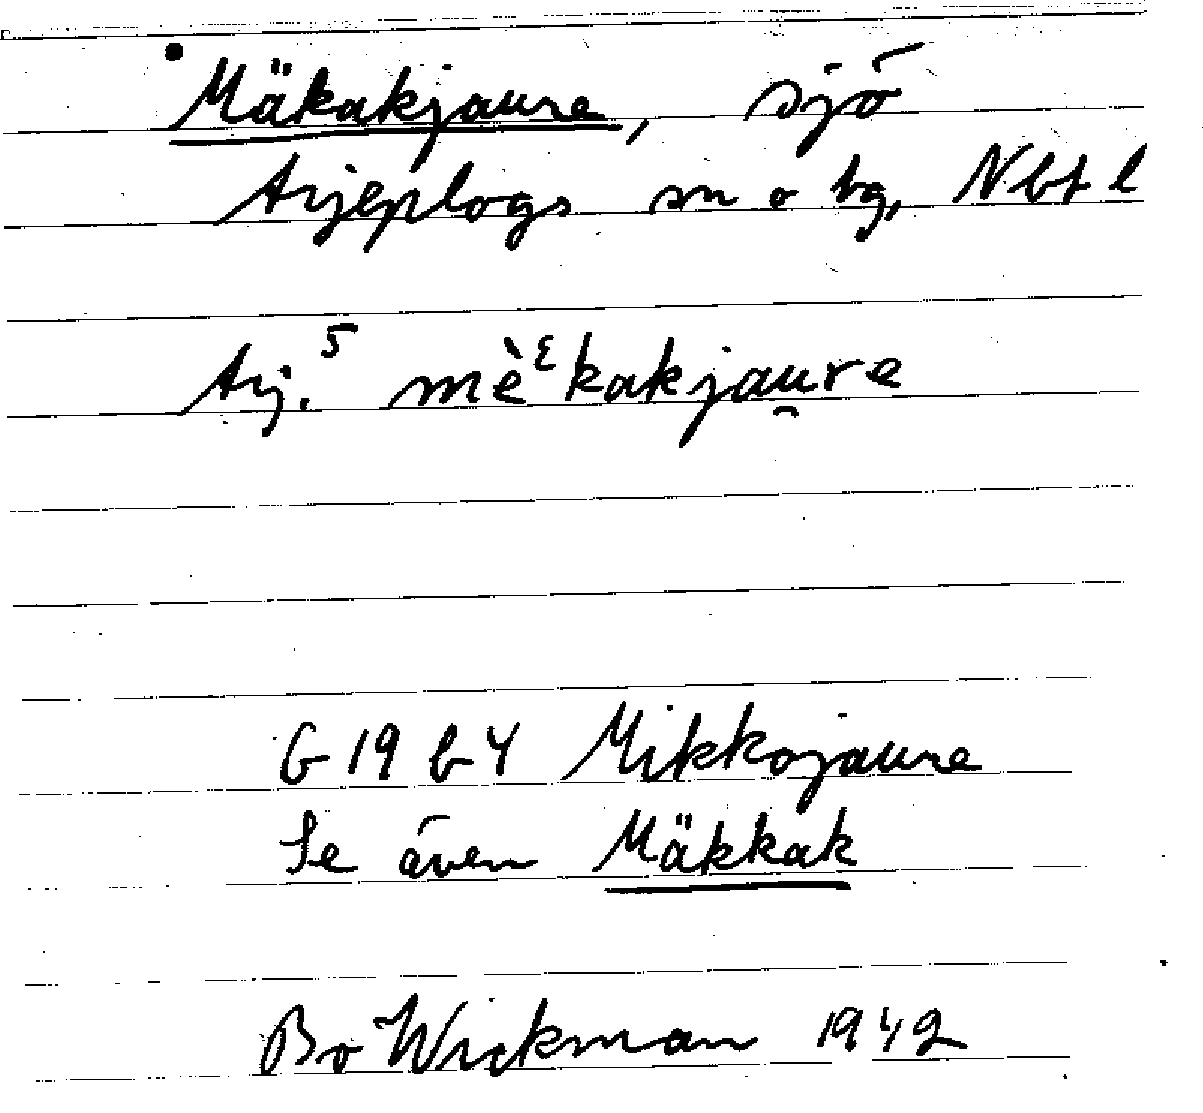 Mäkakjaure, sjö
Arjeplogs sn o tg, Nbt l
Arj.⁵ mè ͗kakjau̯re
G 19 b Y Mikkojaure
Se även Mäkkak
Bo Wickman 1942